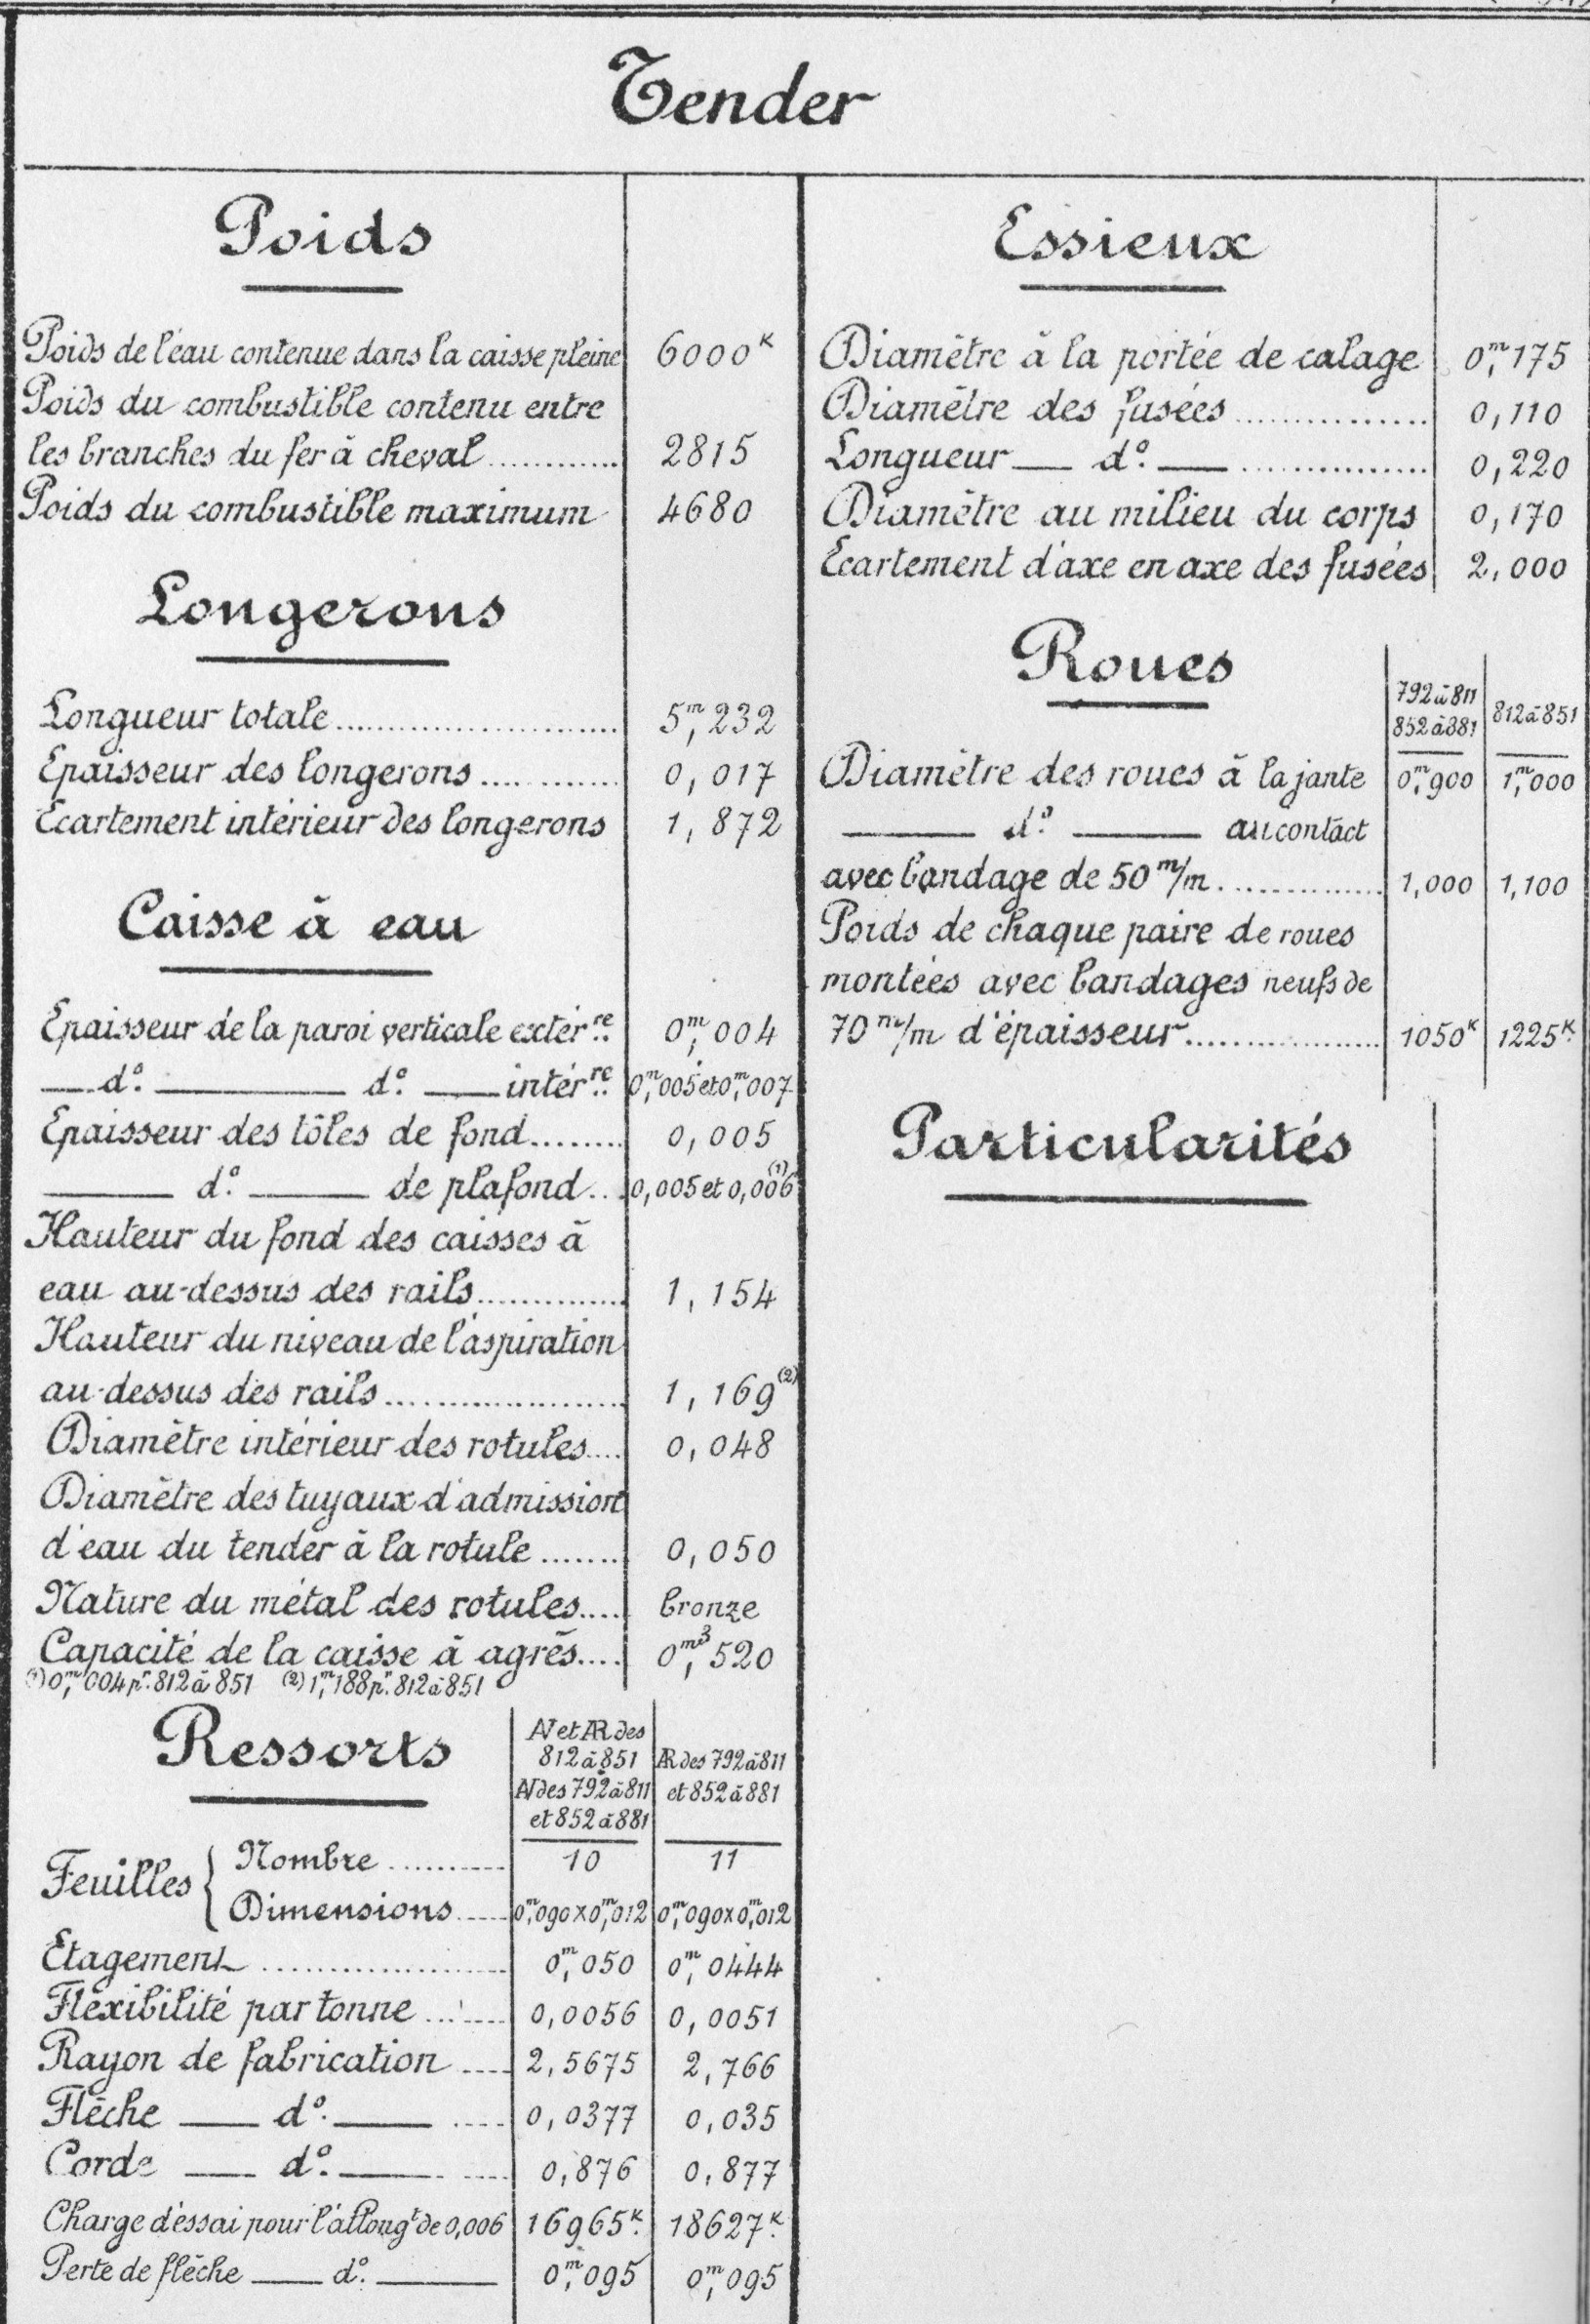 Tender
Poids
Poids de l'eau contenue dans la caisse pleine 6000ᴷ
Poids du combustible contenu entre
les branches du fer à cheval............ 2815
Poids du combustible maximum 4680
Longerons
Longueur totale........................ 5ᵐ,232
Epaisseur des longerons............ 0,017
Ecartement intérieur des longerons 1,872
Caisse à eau
Epaisseur de la paroi verticaleextérʳᵉ 0ᵐ,004
— dº. — dº. — intérʳᵉ 0ᵐ,005 et 0ᵐ,007
Epaisseur des tôles de fond........ 0,005
— dº. — de plafond... 0,005 et 0,006⁽¹⁾
Hauteur du fond des caisses à
eau au-dessus des rails.............. 1,154
Hauteur du niveau de l'aspiration
au-dessus des rails.................... 1,169⁽²⁾
Diamètre intérieur des rotules.... 0,048
Diamètre des tuyaux d'admission
d'eau du tender à la rotule........ 0,050
Nature du métal des rotules.... bronze
Capacité de la caisse à agrès.... 0ᵐ³,520
(1) 0ᵐ,004 pʳ. 812 à 851 (2) 1ᵐ,188 pʳ. 812 à 851
Ressorts
AV et AR des
812 à 851
AV des 792 à 811
et 852 à 881
AR des 792 à 811
et 852 à 881
Feuilles { Nombre.......... 10 11
Dimensions..... 0ᵐ,090 x 0ᵐ,012 0ᵐ,090 x 0ᵐ,012
Etagement.................... 0ᵐ,050 0ᵐ,0444
Fléxibilité par tonne....... 0,0056 0,0051
Rayon de fabrication.... 2,5675 2,766
Flèche — dº. — .... 0,0377 0,035
Corde — dº. — .... 0,876 0,877
Charge d'éssai pour l'allongᵗ de 0,006 16965ᴷ. 18627ᴷ.
Perte de flèche — dº. — 0ᵐ,095 0ᵐ,095
Essieux
Diamètre à la portée de calage 0ᵐ,175
Diamètre des fusées................ 0,110
Longueur — dº. — ............... 0,220
Diamètre au milieu du corps 0,170
Ecartement d'axe en axe des fusées 2,000
Roues
792 à 811
852 à 881
812 à 851
Diamètre des roues à la jante 0ᵐ,900 1ᵐ,000
— dº. — au contact
avec bandage de 50 ᵐ/m.............. 1,000 1,100
Poids de chaque paire de roues
montées avec bandages neufs de
70 ᵐ/m d'épaisseur.................. 1050ᴷ 1225ᴷ.
Particularités